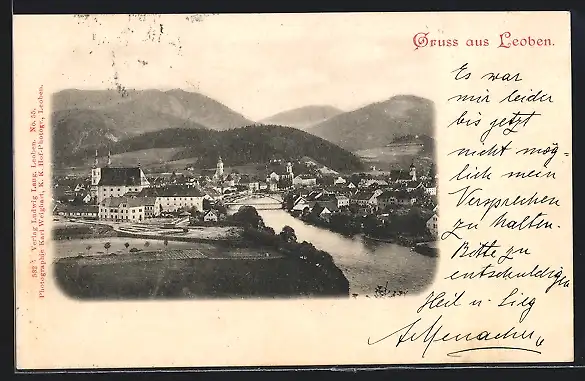 Gruss aus Leoben.
Es war
mir leider
bis jetzt
nicht mög-
lich mein
Versprechen
zu halten.
Bitte zu
entschuldigen
Heil u. Sieg
532 Verlag Ludwig Lang, Leoben. No. 55.
Photographie Karl Weighart, K. K. Hof-Photogr., Leoben.